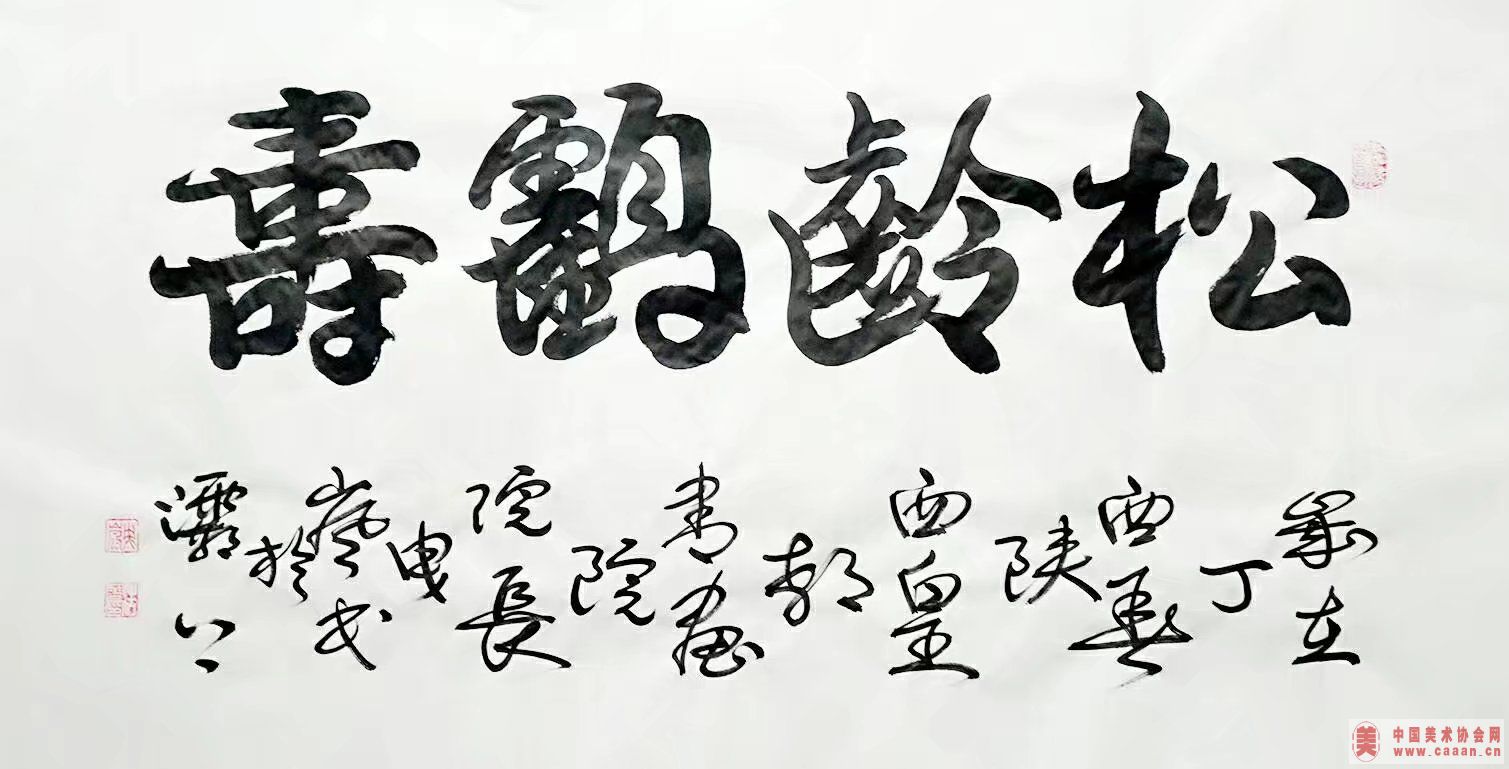 松齡鸖壽
歲在丁酉春陕西皇都書畫院院長於灞上
中国美术协会网
www.caaan.cn